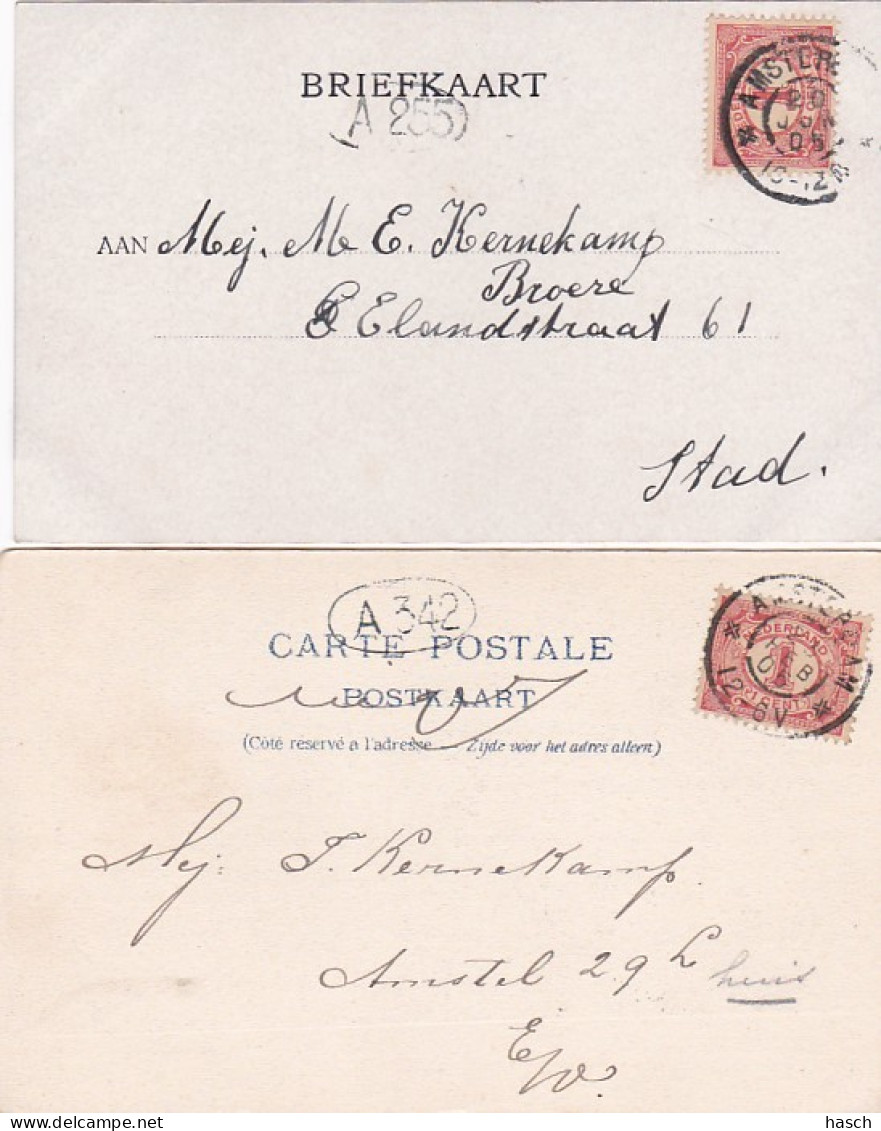 BRIEFKAART
A 255
AMSTER
20
05
10-12
AAN Mej. M E. Kernekamp
Broere
Elandstraat 61
Stad.
A 342
CARTE POSTALE
POSTKAART
(Côté réservé a l'adresse — Zijde voor het adres alleen)
AMSTERDAM
NEDERLAND
1
CENT
12-6V
Mej: T. Kernekamp.
Amstel 29 L huis
E/V.
hasch